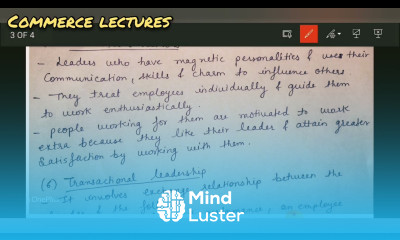 COMMERCE LECTURES
3 OF 4
- Leaders who have magnetic personalities & uses their
Communication, skills & charm to influence others
- They treat employees individually & guide them
to work enthusiastically.
- people working for them are motivated to work
extra because they like their leader & attain greater
satisfaction by working with them.
(6) Transactional leadership
It involves relationship between the
& the an employee
Mind
Luster